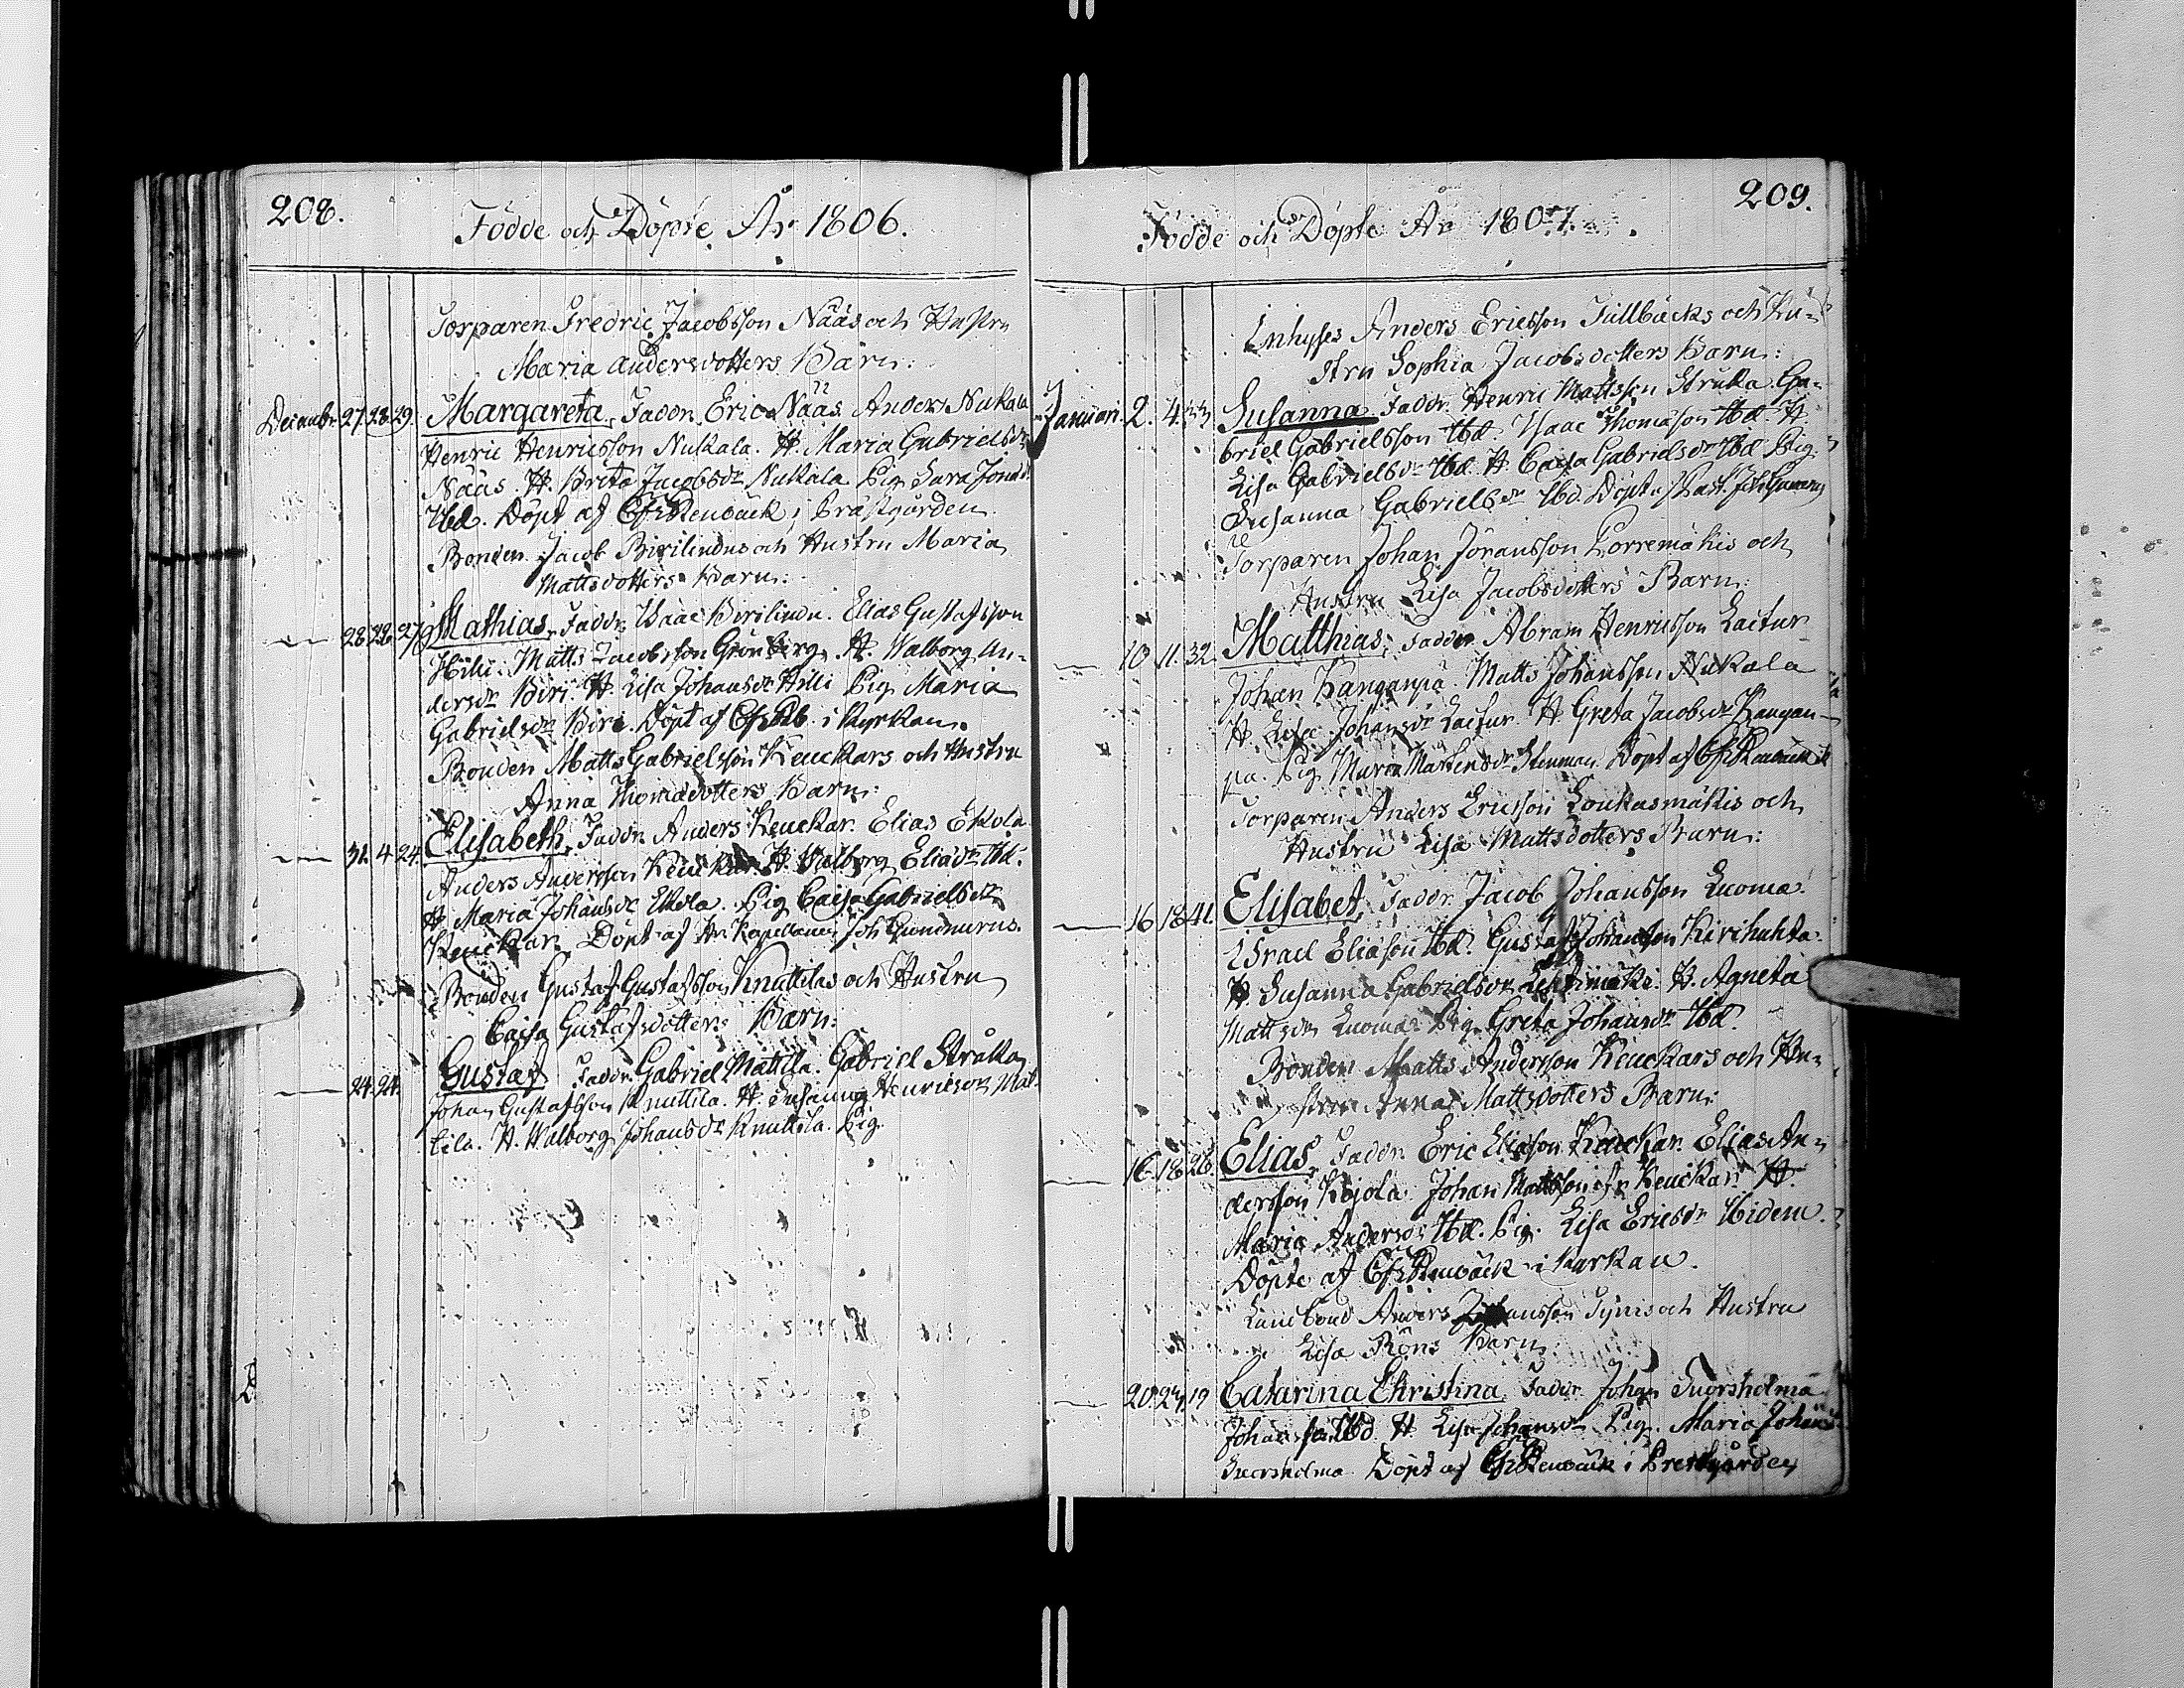 208.
Födde och Döpte År 1806.
Torparen Fredric Jacobsson Nääs och Hustru
Maria andersdotters Barn:
Decembr. 27. 28. 29. Margareta, Faddr. Eric Nääs. Anders Nukala
Henric Henricsson Nukala. H. Maria Gabrielsdr
Nääs. H. Brita Jacobsdr Nukala Pig. Sara
Ibd. Döpt af i Prästgården
Bonden Jacob och Hustru Maria
Mattsdotters Barn:
28. 29. 27. Mathias, Faddr. Isaac Elias Gustafsson
Hilli. Matts Jacobsson Grönberg. H. Walborg An-
dersdr Biri. H. Lisa Johansdr Hilli Pig. Maria
Gabrielsdr Biri. Döpt af i Kyrkan.
Bonden Matts Gabrielsson Keuckars och Hustru
Anna Thomædotters Barn:
31. 4. 24. Elisabeth, Faddr. Anders Keuckar. Elias
Anders Andersson Keuckar. H. Walborg Eliædr Ibd.
H. Maria Johansdr Pig. Caisa Gabrielsdr
Keuckar. Döpt af Hr. Kapellanen Joh.
Bonden Gustaf Gustafsson Knuttilas och Hustru
Caisa Gustafsdotters Barn:
24. 24. Gustaf Faddr. Gabriel Mattila. Gabriel Stråka
Johan Gustafsson Knuttila. H. Susanna Henricsdr Mat-
tila. H. Walborg Johansdr Knuttila. Pig.
209.
Födde och Döpte År 1807.
Inhyses Anders Ericsson Tullbacks och Hu-
stru Sophia Jacobsdotters Barn:
Januari. 2. 4. 33 Susanna, Faddr. Henric Mattsson Ga-
briel Gabrielsson Ibd. Isaac Thomason Ibd. H.
Lisa Gabrielsdr Ibd. H. Caisa Gabrielsdr Ibd Pig.
Susanna Gabrielsdr Ibd. Döpt
Torparen Johan Jöransson och
Hustru Lisa Jacobsdotters Barn:
10. 11. 32. Matthias, Faddr. Abram Henricsson
Johan Kanganpä. Matts Johansson Nukala
H. Lisa Johansdr H. Greta Jacobsdr Kangan-
pä. Pig. Maria Mårtensdr Stenman. Döpt af
Torparen Anders Ericsson Loukasmäkis och
Hustru Lisa Mattsdotters Barn:
16. 18. 41. Elisabet, Faddr. Jacob Johansson Luoma.
Israel Eliason Ibd. Gustaf Johansson Kirihuhta
H. Susanna Gabrielsdr H. Agneta
Mattsdr Luoma. Pig. Greta Johansdr Ibd.
Bonden Matts Andersson Keuckars och Hu-
stru Anna Mattsdotters Barn:
16. 18. 26. Elias, Faddr. Eric Eliason Keuckar. Elias An-
dersson Kojola. Johan Mattsson Keuckar. H.
Maria Andersdr Ibd. Pig. Lisa Ericsdr Ibidem.
Döpte af i Kyrkan.
Landbond Anders Johansson och Hustru
Lisa Röns Barn
20. 24. 19 Catarina Christina, Faddr. Johan Tuorsholma
Johansson Ibd. H. Lisa Johansdr Pig. Maria
Tuorsholma Döpt af i Prestgården